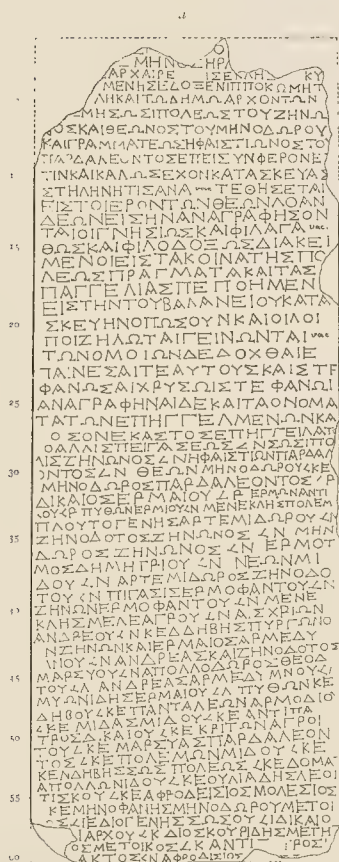 a
Ο
ΜΗΝ ΗΡΑ
ΑΡΧΑΙΡΕ ΙΣΕΚΛΗΣ ΚΥ
ΜΕΝΗΣΕΔΟΞΕΝΙΠΠΟΚΩΜΗΤ
ΛΗΚΑΙΤΩΔΗΜΩΑΡΧΟΝΤΩΝ
ΜΗΣΩΣΙΠΟΛΕΩΣΤΟΥΖΗΝΩ
ΟΣΚΑΙΘΕΩΝΟΣΤΟΥΜΗΝΟΔΩΡΟΥ
ΚΑΙΓΡΑΜΜΑΤΕΩΣΗΦΑΙΣΤΙΩΝΟΣΤΟ
ΠΑΡΔΑΛΕΟΝΤΟΣΕΠΕΙΣΥΝΦΕΡΟΝΕ
ΤΙΝΚΑΙΚΑΛΩΣΕΧΟΝΚΑΤΑΣΚΕΥΑΣ
ΣΤΗΛΗΝΗΤΙΣΑΝΑ vac ΤΕΘΗΣΕΤΑΙ
ΕΙΣΤΟΙΕΡΟΝΤΩΝΘΕΩΝΛΟΑΝ
ΔΕΩΝΕΙΣΗΝΑΝΑΓΡΑΦΗΣΟΝ
ΤΑΙΟΙΓΝΗΣΙΩΣΚΑΙΦΙΛΑΓΑ vac.
15 ΘΩΣΚΑΙΦΙΛΟΔΟΞΩΣΔΙΑΚΕΙ
ΜΕΝΟΙΕΙΣΤΑΚΟΙΝΑΤΗΣΠΟ
ΛΕΩΣΠΡΑΓΜΑΤΑΚΑΙΤΑΣ
ΠΑΓΓΕΛΙΑΣΠΕΠΟΗΜΕΝ
ΕΙΣΤΗΝΤΟΥΒΑΛΑΝΕΙΟΥΚΑΤΑ
20 ΣΚΕΥΗΝΟΠΩΣΟΥΝΚΑΙΟΙΛΟΙ
ΠΟΙΖΗΛΩΤΑΙΓΕΙΝΩΝΤΑΙ vac
ΤΩΝΟΜΟΙΩΝΔΕΔΟΧΘΑΙΕ
ΠΑΙΝΕΣΑΙΤΕΑΥΤΟΥΣΚΑΙΣΤΕ
ΦΑΝΩΣΑΙΧΡΥΣΩΙΣΤΕΦΑΝΩΙ
25 ΑΝΑΓΡΑΦΗΝΑΙΔΕΚΑΙΤΑΟΝΟΜΑ
ΤΑΤΩΝΕΠΗΓΓΕΛΜΕΝΩΝΚΑ
ΟΣΟΝΕΚΑΣΤΟΣΕΠΗΓΓΕΙΛΑΤ
30 ΛΙΣΖΗΝΩΝΟΣ&lt;ΝΗΦΑΙΣΤΙΩΝΠΑΡΔΑΛ
ΟΝΤΟΣ&lt;Ν ΘΕΩΝΜΗΝΟΔΩΡΟΥ&lt;ΚΕ
ΜΗΝΟΔΩΡΟΣΠΑΡΔΑΛΕΟΝΤΟΣ&lt;Ρ
ΔΙΚΑΙΟΣΕΡΜΑΙΟΥ&lt;Ρ ΕΡΜΩΝΑΝΤΙ
ΟΥ&lt;Ρ ΠΥΘΩΝΕΡΜΙΟΥ&lt;Ν ΜΕΝΕΚΛΗΣΠΟΛΕΜ
ΠΛΟΥΤΟΓΕΝΗΣΑΡΤΕΜΙΔΩΡΟΥ&lt;Ν
35 ΖΗΝΟΔΟΤΟΣΖΗΝΩΝΟΣ&lt;Ν ΜΗΝ
ΔΩΡΟΣΖΗΝΩΝΟΣ&lt;Ν ΕΡΜΟΤ
ΜΟΣΔΗΜΗΤΡΙΟΥ&lt;Ν ΝΕΩΝΜΙ
ΔΟΥ&lt;Ν ΑΡΤΕΜΙΔΩΡΟΣΖΗΝΟΔΟ
ΤΟΥ&lt;Ν ΠΙΓΑΣΙΣΕΡΜΟΦΑΝΤΟΥ&lt;Ν
ΖΗΝΩΝΕΡΜΟΦΑΝΤΟΥ&lt;Ν ΜΕΝΕ
ΚΛΗΣΜΕΛΕΑΓΡΟΥ&lt;ΝΑΣΧΡΙΩΝ
ΑΝΔΡΕΟΥ&lt;ΝΚΕΔΔΗΒΗΣΠΥΡΓΩΝΟ
ΝΖΗΝΩΝΚΑΙΕΡΜΑΙΟΣΑΡΜΕΔΥ
ΝΙΟΥ&lt;ΝΑΝΔΡΕΑΣΚΑΙΖΗΝΟΔΟΤΟΣ
45 ΜΑΡΣΥΟΥ&lt;ΝΑΠΟΛΛΟΔΩΡΟΣΘΕΟΔ
ΤΟΥ&lt;Λ ΑΝΔΡΕΑΣΑΡΜΕΔΥΜΝΟΥ&lt;
ΜΥΩΝΙΔΗΣΕΡΜΑΙΟΥ&lt;Λ ΠΥΘΩΝΚΕ
ΔΗΒΟΥ&lt;ΚΕΠΑΝΤΑΛΕΩΝΑΡΜΟΔΙΟ
50 ΤΡΟΣΔΙΚΑΙΟΥ&lt;ΚΕΚΡΙΤΩΝΑΓΡΟΙ
ΤΟΥ&lt;ΚΕ ΜΑΡΣΥΑΣΠΑΡΔΑΛΕΟΝ
ΤΟΣ&lt;ΚΕΠΟΛΕΜΩΝΜΙΔΟΥ&lt;ΚΕ
ΚΕΝΔΗΒΗΣΣΩΣΠΟΛΕΩΣ&lt;ΚΕΔΟΜΑ
ΑΠΟΛΛΩΝΙΔΟΥ&lt;ΚΕΟΥΛΙΑΔΗΣΛΕΟΙ
55 ΤΙΣΚΟΥ&lt;ΚΕΑΦΡΟΔΕΙΣΙΟΣΜΟΛΕΣΙΟΣ
ΚΕΜΗΝΟΦΑΝΗΣΜΗΝΟΔΩΡΟΥΜΕΤΟΙ
Σ&lt;ΙΕΔΙΟΓΕΝΗΣΣΩΣΟΥ&lt;ΙΔΙΚΑΙΟ
ΙΑΡΧΟΥ&lt;Κ ΔΙΟΣΚΟΥΡΙΔΗΣΜΕΤΗ
ΟΣΜΕΤΟΙΚΟΣ&lt;Κ ΑΝΤΙ ΓΡΟΣ
60 ΑΚΤΟΣ&lt;ΝΑΦΡΟΔΙΣΙΟΣ